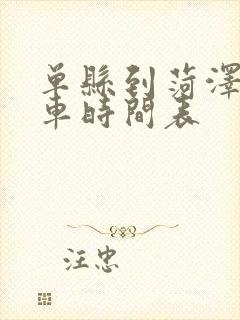 单縣到菏澤
車時間表
汪忠